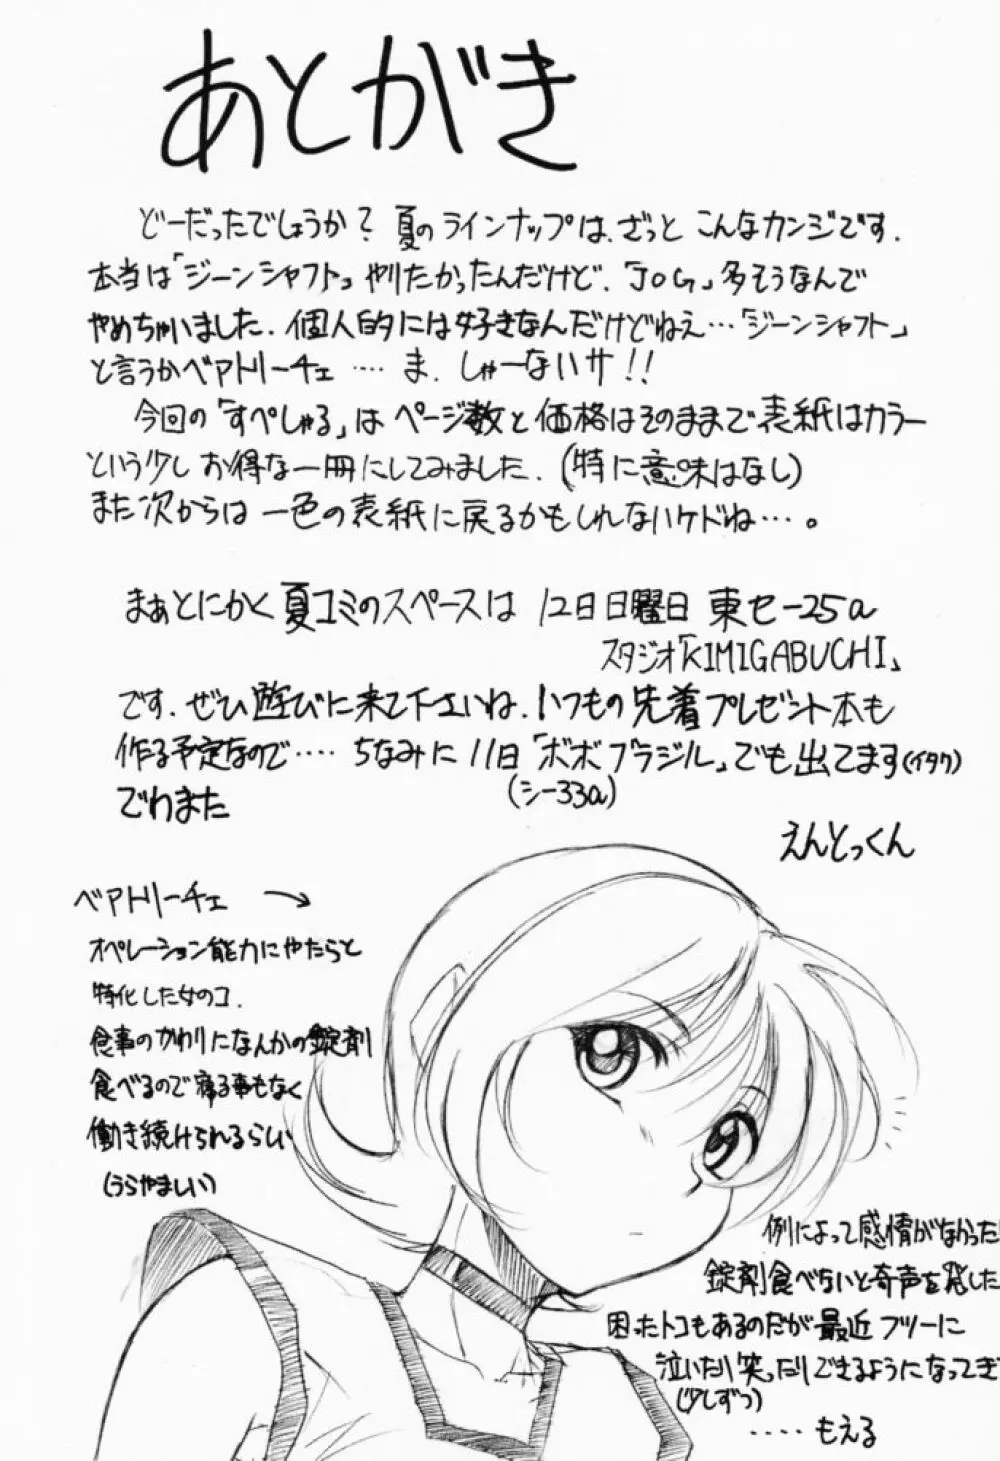 あとがき
どーだったでしょうか？夏のラインナップは、ざっと こんなカンジです.
本当は「ジーンシャフト」やりたかったんだけど、「JOG」多そうなんで
やめちゃいました. 個人的には好きなんだけどねえ…「ジーンシャフト」
と言うかベアトリーチェ ‥‥ ま、しゃーないサ!!
今回の「すぺしゃる」はページ数と価格はそのままで表紙はカラー
という少しお得な一冊にしてみました.(特に意味はなし)
また次からは一色の表紙に戻るかもしれないケドね…。
まぁとにかく夏コミのスペースは 12日日曜日 東セー25a
スタジオ「KIMIGABUCHI」
です. ぜひ遊びに来て下さいね. いつもの先着プレゼント本も
作る予定なので‥‥ ちなみに 11日「ボボブラジル」でも出てます(イタク)
(シー33a)
でわまた
えんとっくん
ベアトリーチェ →
オペレーション能力にやたらと
特化した女のコ.
食事のかわりになんかの錠剤
食べるので寝る事もなく
働き続けられるらしい
(うらやましい)
例によって感情がなかったり
錠剤食べないと奇声を発した
困ったトコもあるのだが最近フツーに
泣いたり笑ったりできるようになってき
(少しずつ)
‥‥もえる